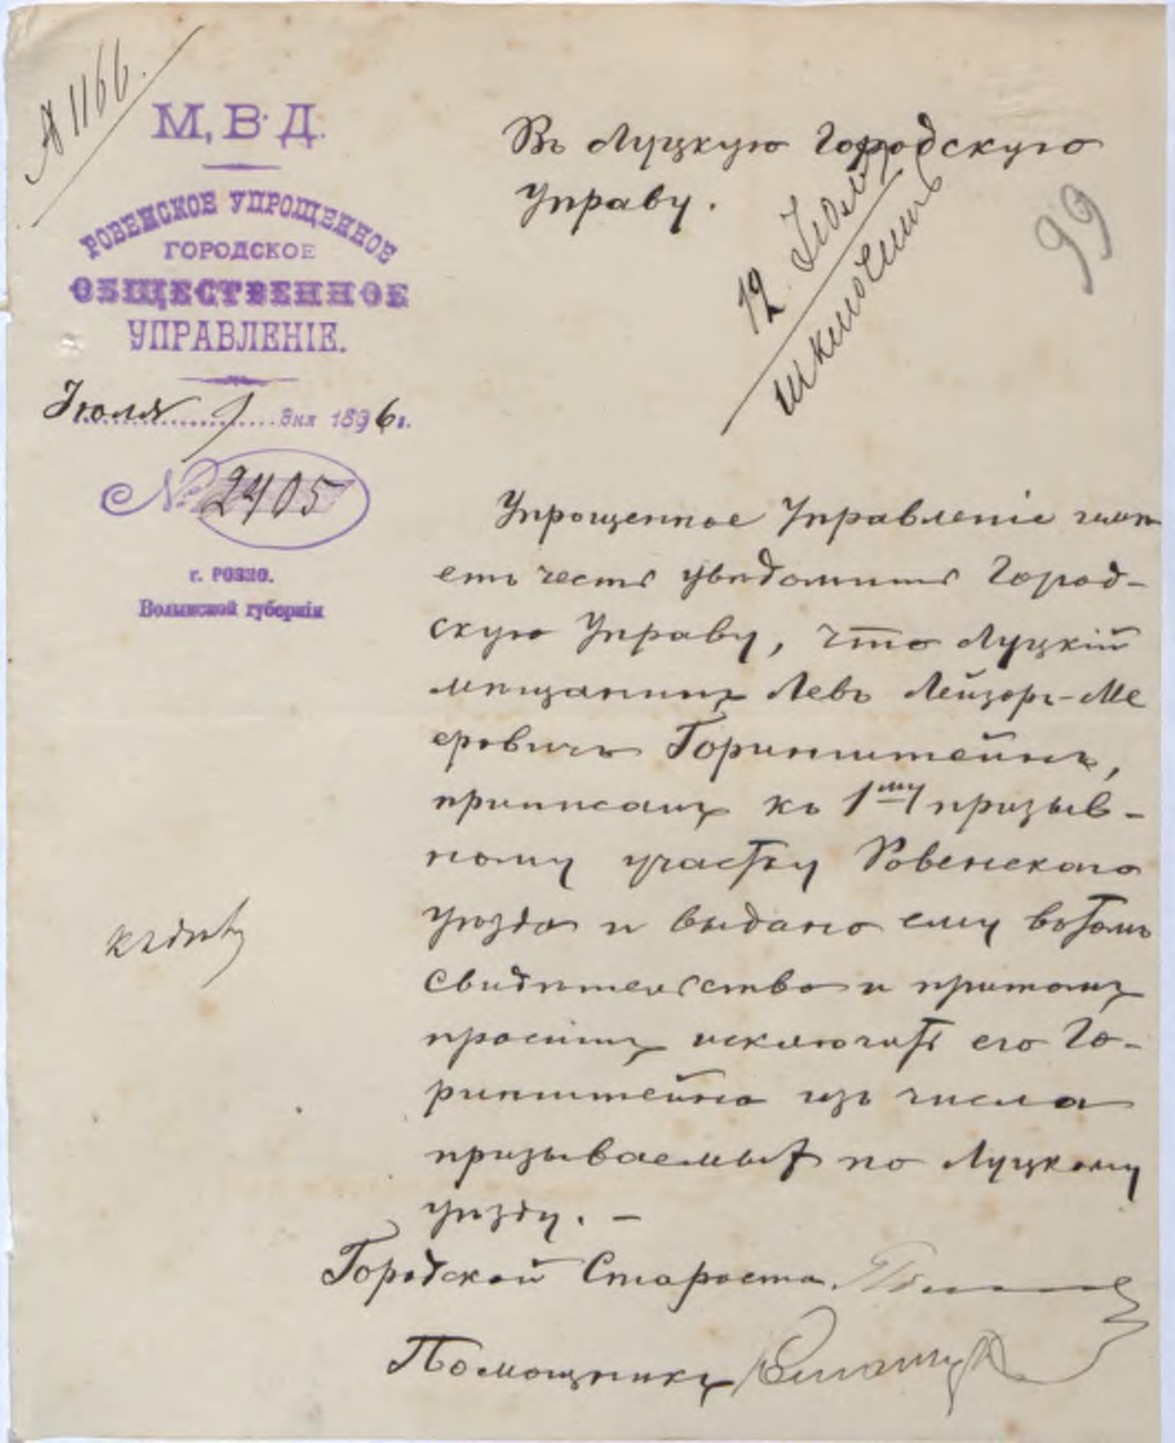 № 1166.
М. В. Д.
РОВЕНСКОЕ УПРОЩЕННОЕ
ГОРОДСКОЕ
ОБЩЕСТВЕННОЕ
УПРАВЛЕНІЕ.
Іюля 1 дня 1896 г.
№ 2405
г. РОВНО.
Волынской губерніи
Въ Луцкую Городскую
Управу.
99
12 Іюля
Упрощенное Управленіе имѣ
етъ честь увѣдомить Город-
скую Управу, что Луцкій
мѣщанинъ Левъ Лейзоръ-Ме
еровичъ Горинштейнъ,
приписанъ къ 1му призыв-
ному участку Ровенского
уѣзда и выдано ему вотомъ
свидѣтельство и притомъ
проситъ исключить его Го-
ринштейна изъ числа
призываемыхъ по Луцкому
уѣзду. –
Городской Староста
Помощникъ